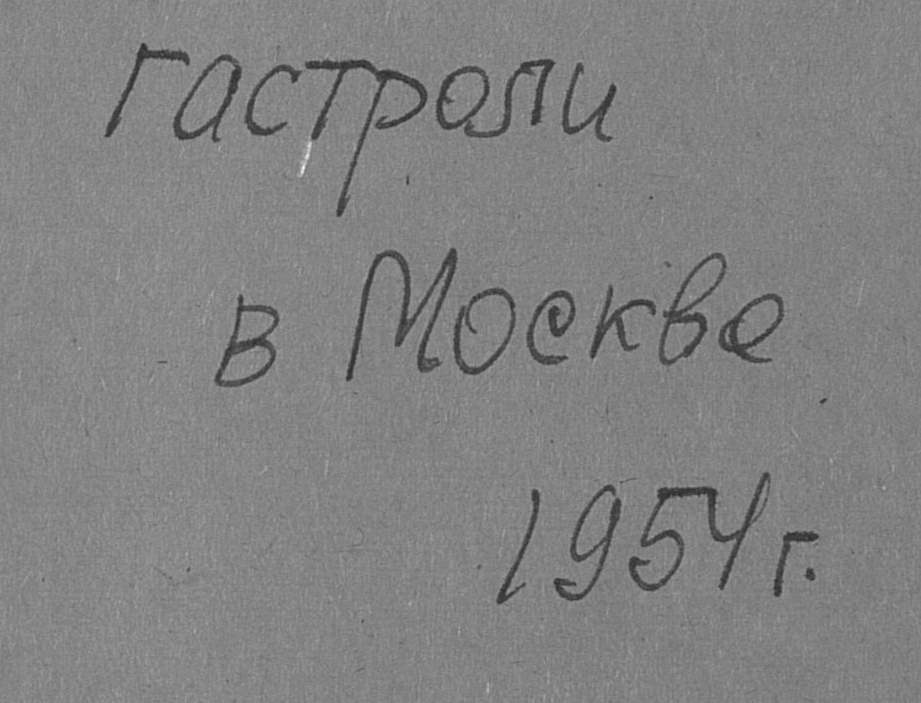 гастроли
в Москве
1954 г.